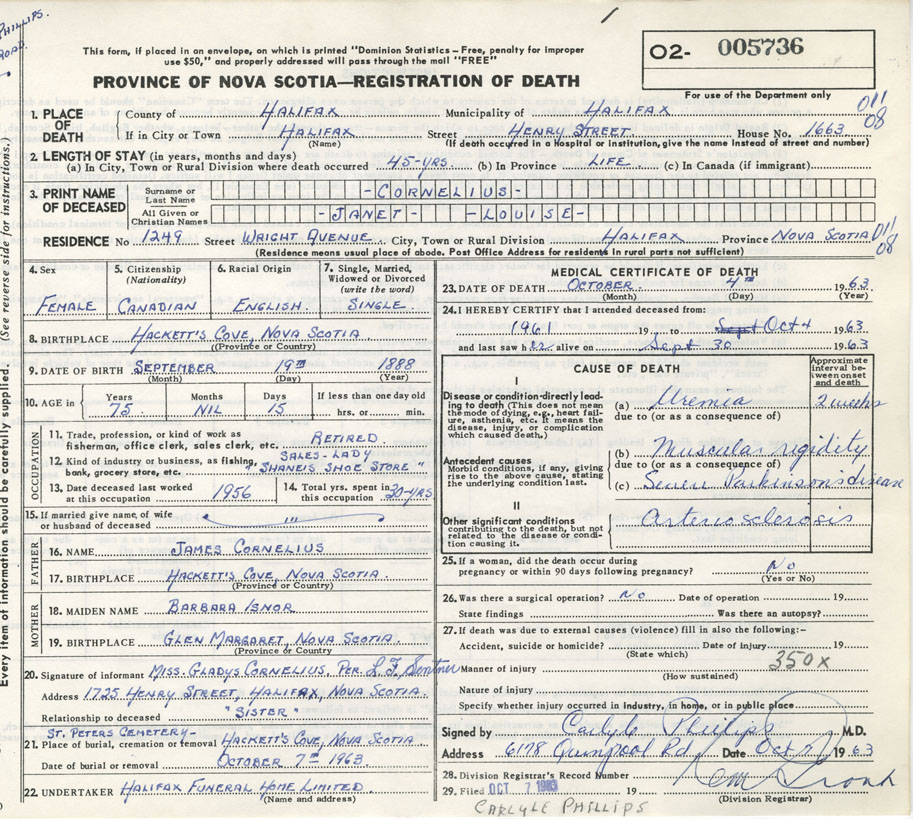 PHILLIPS.
ROAD.
This form, if placed in an envelope, on which is printed "Dominion Statistics – Free, penalty for improper
use $50," and properly addressed will pass through the mail "FREE"
O2- 005736
PROVINCE OF NOVA SCOTIA—REGISTRATION OF DEATH
For use of the Department only
1. PLACE OF DEATH County of HALIFAX Municipality of HALIFAX 011 08
If in City or Town HALIFAX Street HENRY STREET House No. 1663
(Name) (If death occurred in a Hospital or Institution, give the name instead of street and number)
2. LENGTH OF STAY (in years, months and days)
(a) In City, Town or Rural Division where death occurred 45-YRS. (b) In Province LIFE. (c) In Canada (if immigrant).
3. PRINT NAME OF DECEASED Surname or Last Name -CORNELIUS-
All Given or Christian Names -JANET- -LOUISE-
RESIDENCE No 1249 Street WRIGHT AVENUE. City, Town or Rural Division HALIFAX Province NOVA SCOTIA 011 08
(Residence means usual place of abode. Post Office Address for residents in rural parts not sufficient)
(See reverse side for instructions.)
Every item of information should be carefully supplied.
4. Sex 5. Citizenship (Nationality) 6. Racial Origin 7. Single, Married, Widowed or Divorced (write the word)
FEMALE CANADIAN ENGLISH. SINGLE.
8. BIRTHPLACE HACKETT'S COVE, NOVA SCOTIA
(Province or Country)
9. DATE OF BIRTH SEPTEMBER 19TH 1888
(Month) (Day) (Year)
10. AGE in Years Months Days If less than one day old
75. NIL 15 hrs. or min.
OCCUPATION
11. Trade, profession, or kind of work as fisherman, office clerk, sales clerk, etc. RETIRED
SALES-LADY
12. Kind of industry or business, as fishing, bank, grocery store, etc. "SHANEIS SHOE STORE"
13. Date deceased last worked at this occupation 1956 14. Total yrs. spent in this occupation 30-YRS
15. If married give name of wife or husband of deceased "'
FATHER
16. NAME JAMES CORNELIUS
17. BIRTHPLACE HACKETT'S COVE, NOVA SCOTIA.
(Province or Country)
MOTHER
18. MAIDEN NAME BARBARA ISNOR
19. BIRTHPLACE GLEN MARGARET, NOVA SCOTIA.
(Province or Country)
20. Signature of informant MISS. GLADYS CORNELIUS. PER. L.F.
Address 1725 HENRY STREET, HALIFAX, NOVA SCOTIA.
Relationship to deceased "SISTER"
ST. PETERS CEMETERY-
21. Place of burial, cremation or removal HACKETT'S COVE, NOVA SCOTIA
Date of burial or removal OCTOBER 7TH 1963
22. UNDERTAKER HALIFAX FUNERAL HOME LIMITED.
(Name and address)
MEDICAL CERTIFICATE OF DEATH
23. DATE OF DEATH OCTOBER 4TH 1963
(Month) (Day) (Year)
24. I HEREBY CERTIFY that I attended deceased from:
1961 19 to Sept Oct 4 1963
and last saw her alive on Sept 30 1963
CAUSE OF DEATH Approximate interval between onset and death
I
Disease or condition directly leading to death (This does not mean the mode of dying, e.g., heart failure, asthenia, etc. It means the disease, injury, or complication which caused death.)
(a) Uremia 2 weeks
due to (or as a consequence of)
Antecedent causes
Morbid conditions, if any, giving rise to the above cause, stating the underlying condition last.
(b) Muscular rigidity
due to (or as a consequence of)
(c) Severe Parkinson's disease
II
Other significant conditions
contributing to the death, but not related to the disease or condition causing it.
Arteriosclerosis
25. If a woman, did the death occur during pregnancy or within 90 days following pregnancy? No
(Yes or No)
26. Was there a surgical operation? No Date of operation 19
State findings Was there an autopsy?
27. If death was due to external causes (violence) fill in also the following:–
Accident, suicide or homicide? Date of injury 19
(State which)
350X
Manner of injury
(How sustained)
Nature of injury
Specify whether injury occurred in industry, in home, or in public place
Signed by Carlyle Phillips M.D.
Address 6178 Quinpool Rd Date Oct 7 1963
28. Division Registrar's Record Number
29. Filed OCT 7 1963 19
(Division Registrar)
CARLYLE PHILLIPS